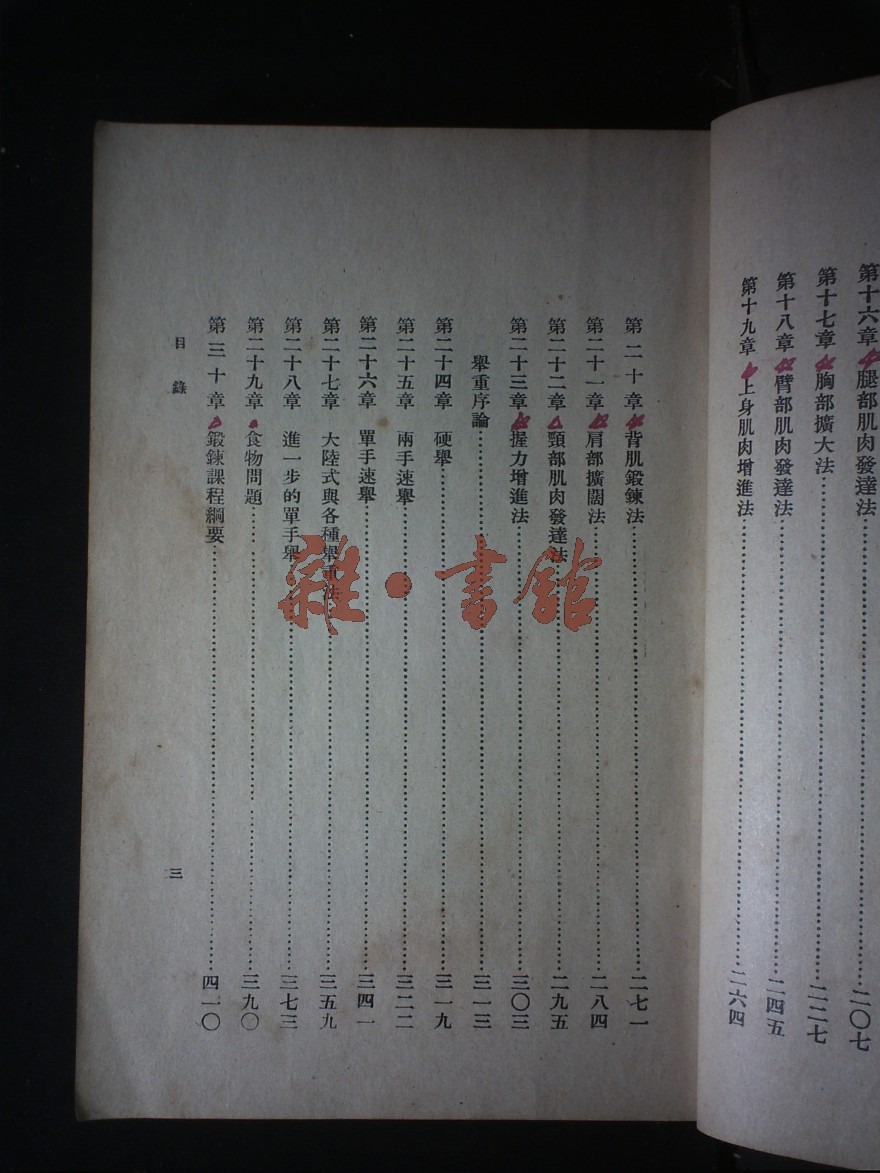 第十六章 腿部肌肉發達法……二〇七
第十七章 胸部擴大法……二二七
第十八章 臂部肌肉發達法……二四五
第十九章 上身肌肉增進法……二六四
第二十章 背肌鍛鍊法……二七一
第二十一章 肩部擴闊法……二八四
第二十二章 頸部肌肉發達法……二九五
第二十三章 握力增進法……三〇三
舉重序論……三一三
第二十四章 硬舉……三一九
第二十五章 兩手速舉……三二二
第二十六章 單手速舉……三四一
第二十七章 大陸式與各種舉重法……三五九
第二十八章 進一步的單手舉……三七三
第二十九章 食物問題……三九〇
第三十章 鍛鍊課程綱要……四一〇
目錄
三
雜·書館